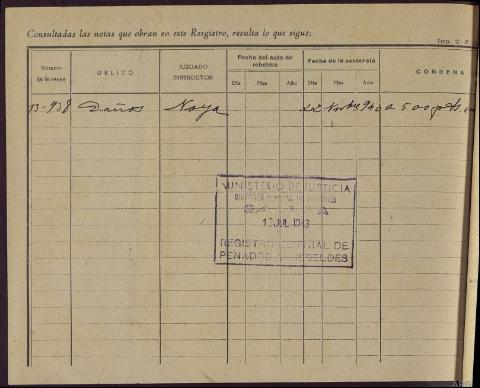 Consultadas las notas que obran en este Resgistro, resulta lo que sigue:
Imp. T. P.
Número
de la causa
DELITO
JUZGADO
INSTRUCTOR
Fecha del auto de
rebeldía
Día Mes Año
Fecha de la sentencia
Día Mes Año
CONDENA
13-938 Daños Noya a 500 pts.
MINISTERIO DE JUSTICIA
DIRECCION GENERAL DE
JUL 1943
REGISTRO CENTRAL DE
PENADOS Y REBELDES